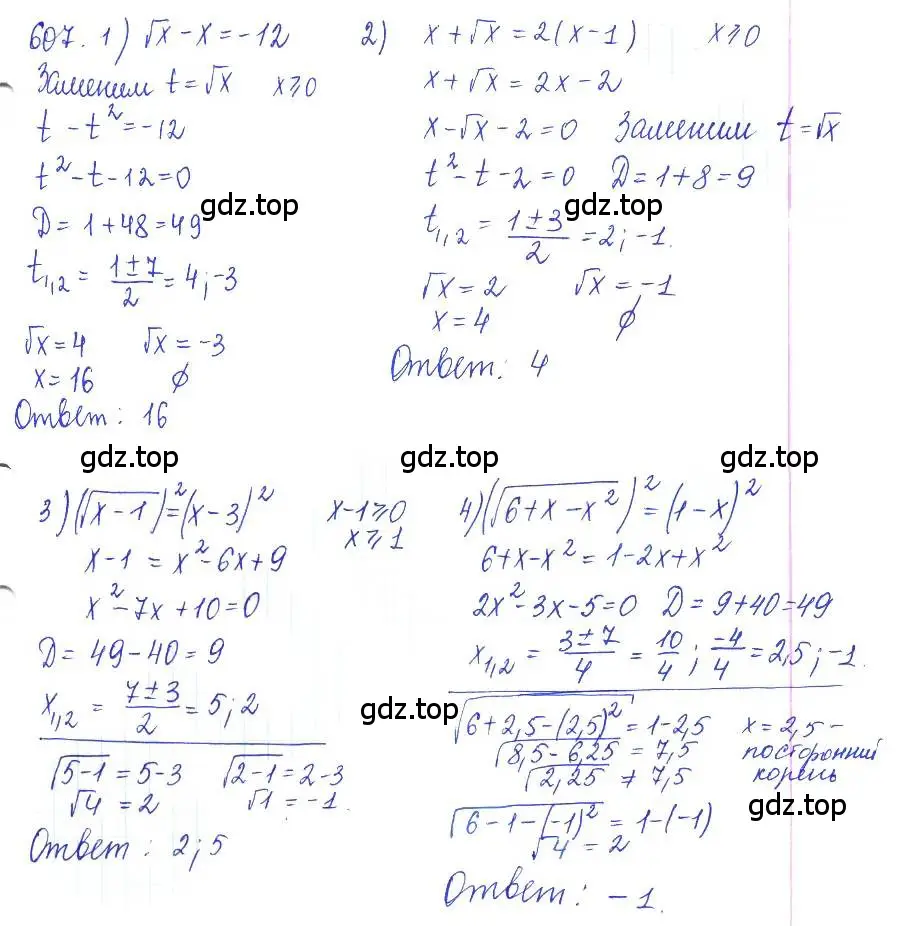 607. 1) √x - x = -12
Заменим t = √x   x ⩾ 0
t - t² = -12
t² - t - 12 = 0
gdz.top
D = 1 + 48 = 49
t₁,₂ = (1 ± 7)/2 = 4; -3
√x = 4   √x = -3
x = 16   ∅
Ответ: 16
2) x + √x = 2(x - 1)   x ⩾ 0
x + √x = 2x - 2
x - √x - 2 = 0   Заменим t = √x
t² - t - 2 = 0   D = 1 + 8 = 9
gdz.top
t₁,₂ = (1 ± 3)/2 = 2; -1.
√x = 2   √x = -1
x = 4   ∅
Ответ: 4
gdz.top
gdz.top
gdz.top
3) (√(x - 1))² = (x - 3)²   x - 1 ⩾ 0
x - 1 = x² - 6x + 9   x ⩾ 1
x² - 7x + 10 = 0
D = 49 - 40 = 9
x₁,₂ = (7 ± 3)/2 = 5; 2
gdz.top
√(5 - 1) = 5 - 3   √(2 - 1) = 2 - 3
√4 = 2   √1 = -1.
Ответ: 2; 5
4) (√(6 + x - x²))² = (1 - x)²
6 + x - x² = 1 - 2x + x²
2x² - 3x - 5 = 0   D = 9 + 40 = 49
x₁,₂ = (3 ± 7)/4 = 10/4; -4/4 = 2,5; -1.
√(6 + 2,5 - (2,5)²) = 1 - 2,5   x = 2,5 -
√(8,5 - 6,25) = 7,5   посторонний
√(2,25) ≠ 7,5   корень
gdz.top
√(6 - 1 - (-1)²) = 1 - (-1)
√4 = 2
Ответ: -1.